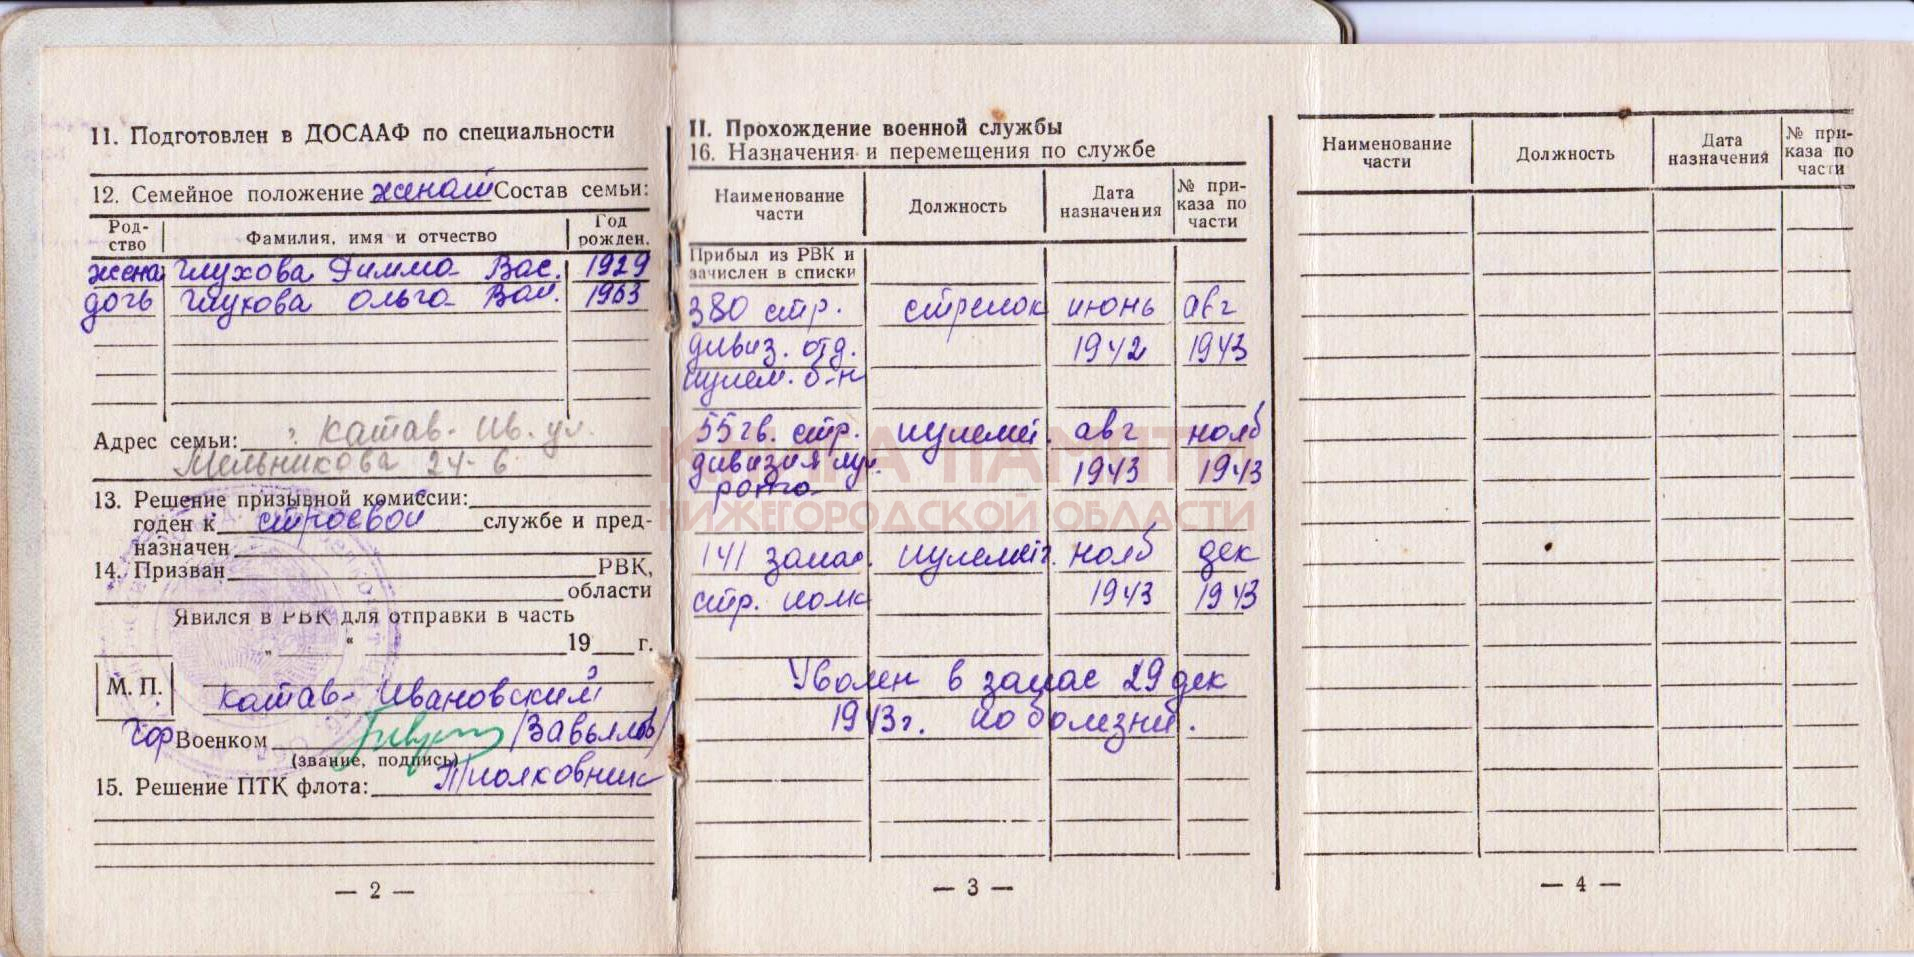 11. Подготовлен в ДОСААФ по специальности
12. Семейное положение женат Состав семьи:
Род-
ство
Фамилия, имя и отчество
Год
рожден.
жена Глухова Римма Вас. 1929
дочь Глухова Ольга Вас. 1953
Адрес семьи: г. Катав-Ив. ул.
Мельникова 24-6
13. Решение призывной комиссии:
годен к строевой службе и пред-
назначен
14. Призван РВК,
области
Явился в РВК для отправки в часть
„ “ 19 г.
М. П.
Катав-Ивановский
Гор Военком /Завьялов/
(звание, подпись)
15. Решение ПТК флота: П/полковник
— 2 —
II. Прохождение военной службы
16. Назначения и перемещения по службе
Наименование
части
Должность
Дата
назначения
№ при-
каза по
части
Прибыл из РВК и
зачислен в списки
380 стр. стрелок июнь авг
дивиз. отд. 1942 1943
пулем. б-н
55 гв. стр. пулемет. авг нояб
дивизия 1943 1943
рота
141 запас. пулемет. нояб дек
стр. полк 1943 1943
Уволен в запас 29 дек
1943г. по болезни.
— 3 —
Наименование
части
Должность
Дата
назначения
№ при-
каза по
части
— 4 —
КНИГА ПАМЯТИ
НИЖЕГОРОДСКОЙ ОБЛАСТИ